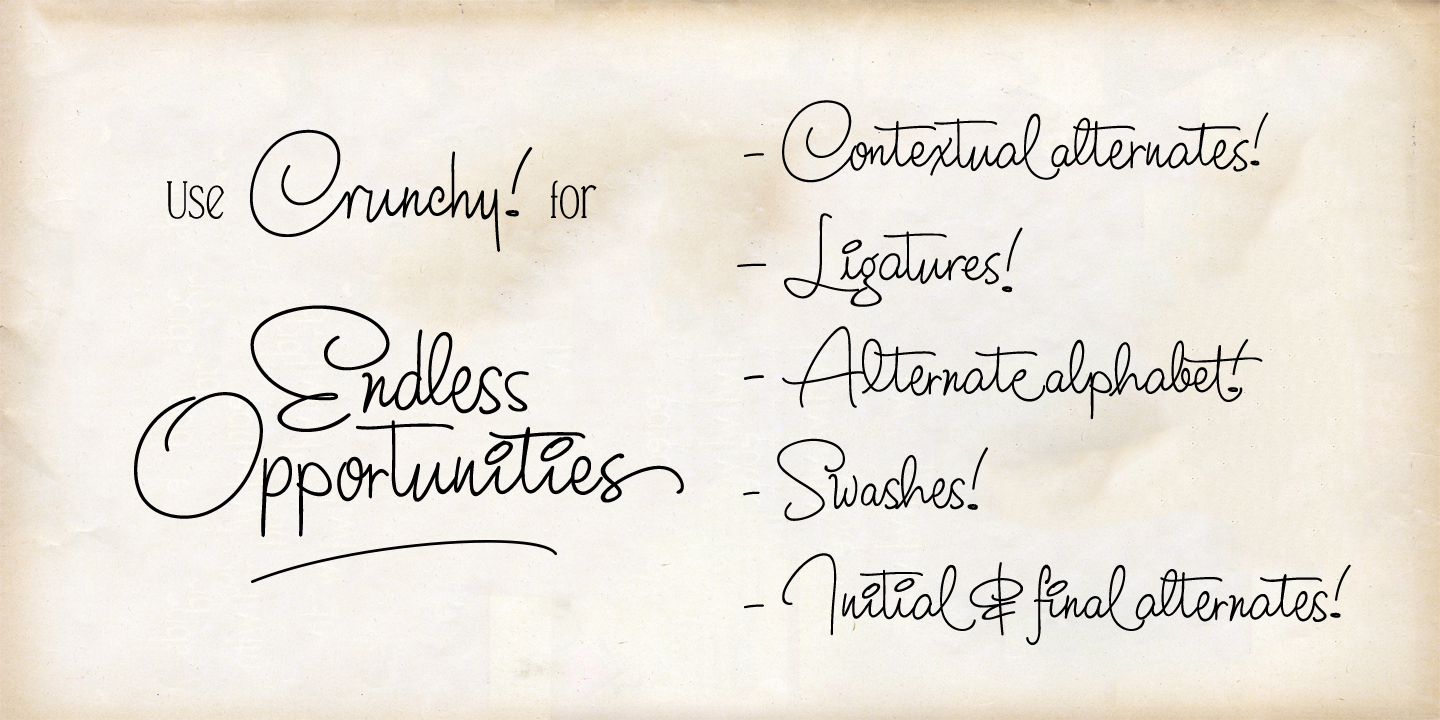 Use Crunchy! for
Endless
Opportunities
- Contextual alternates!
- Ligatures!
- Alternate alphabet!
- Swashes!
- Initial & final alternates!